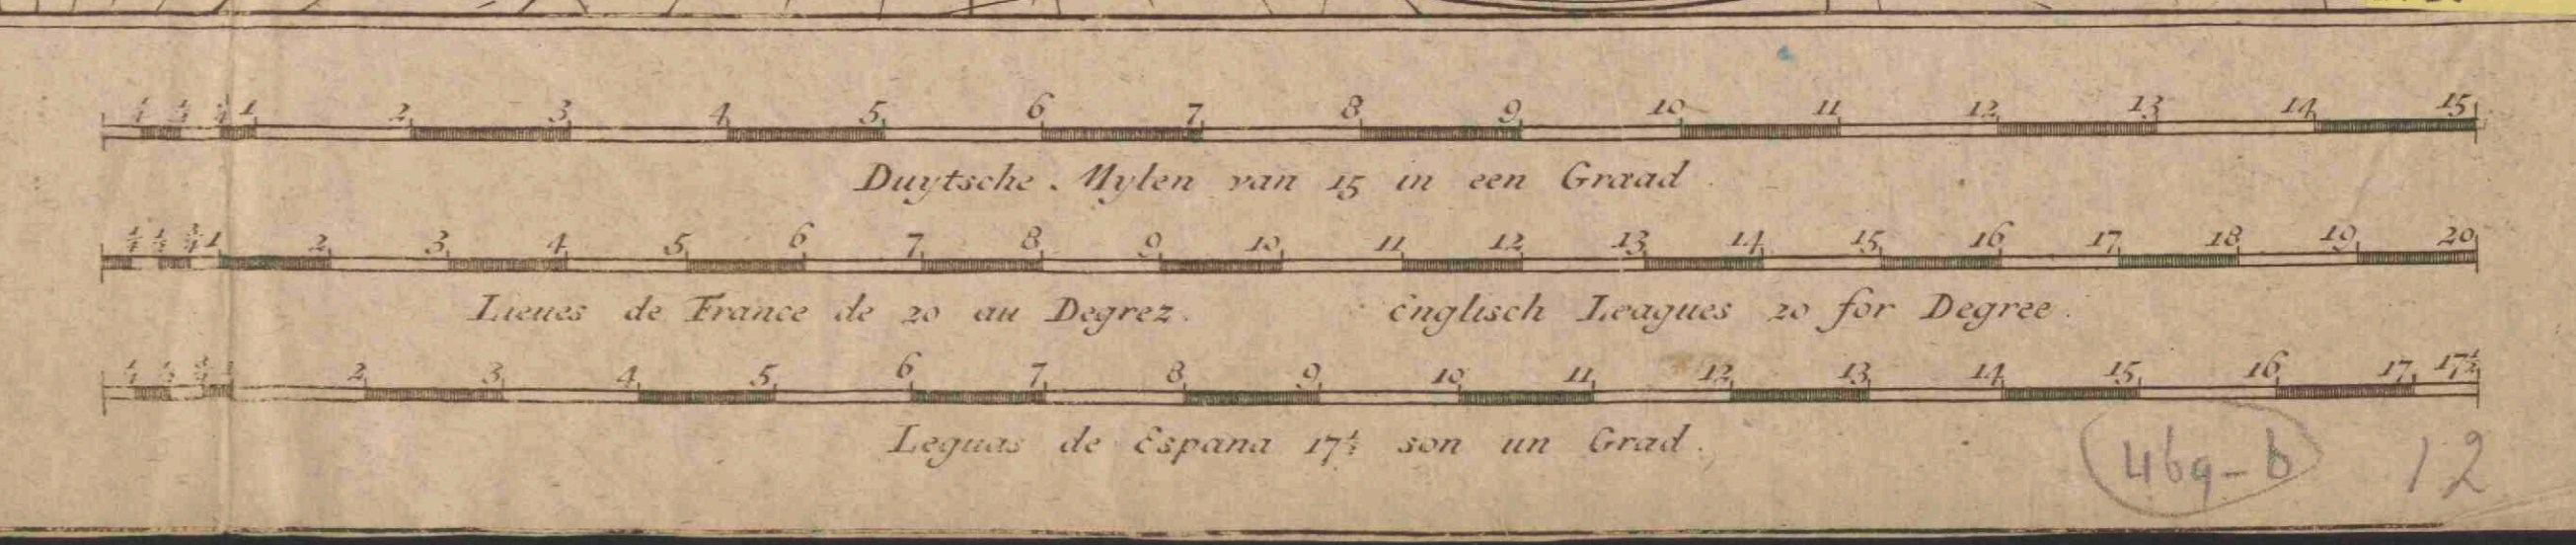 ¼ ½ ¾ 1 2 3 4 5 6 7 8 9 10 11 12 13 14 15
Duytsche. Mylen van 15 in een Graad.
¼ ½ ¾ 1 2 3 4 5 6 7 8 9 10 11 12 13 14 15 16 17 18 19 20
Lieues de France de 20 au Degrez. Englisch Leagues 20 for Degree.
¼ ½ ¾ 1 2 3 4 5 6 7 8 9 10 11 12 13 14 15 16 17 17½
Leguas de Espana 17½ son un Grad.
469-b 12